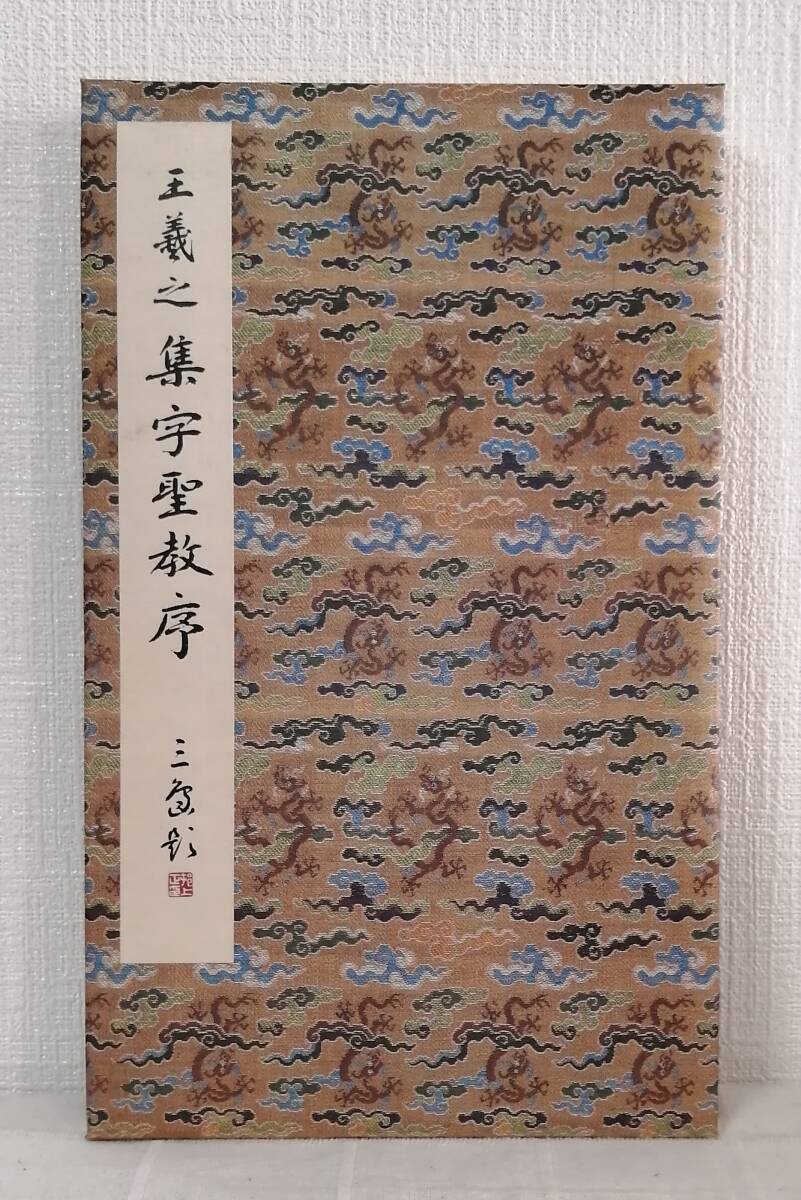 王羲之集字聖教序
三象題